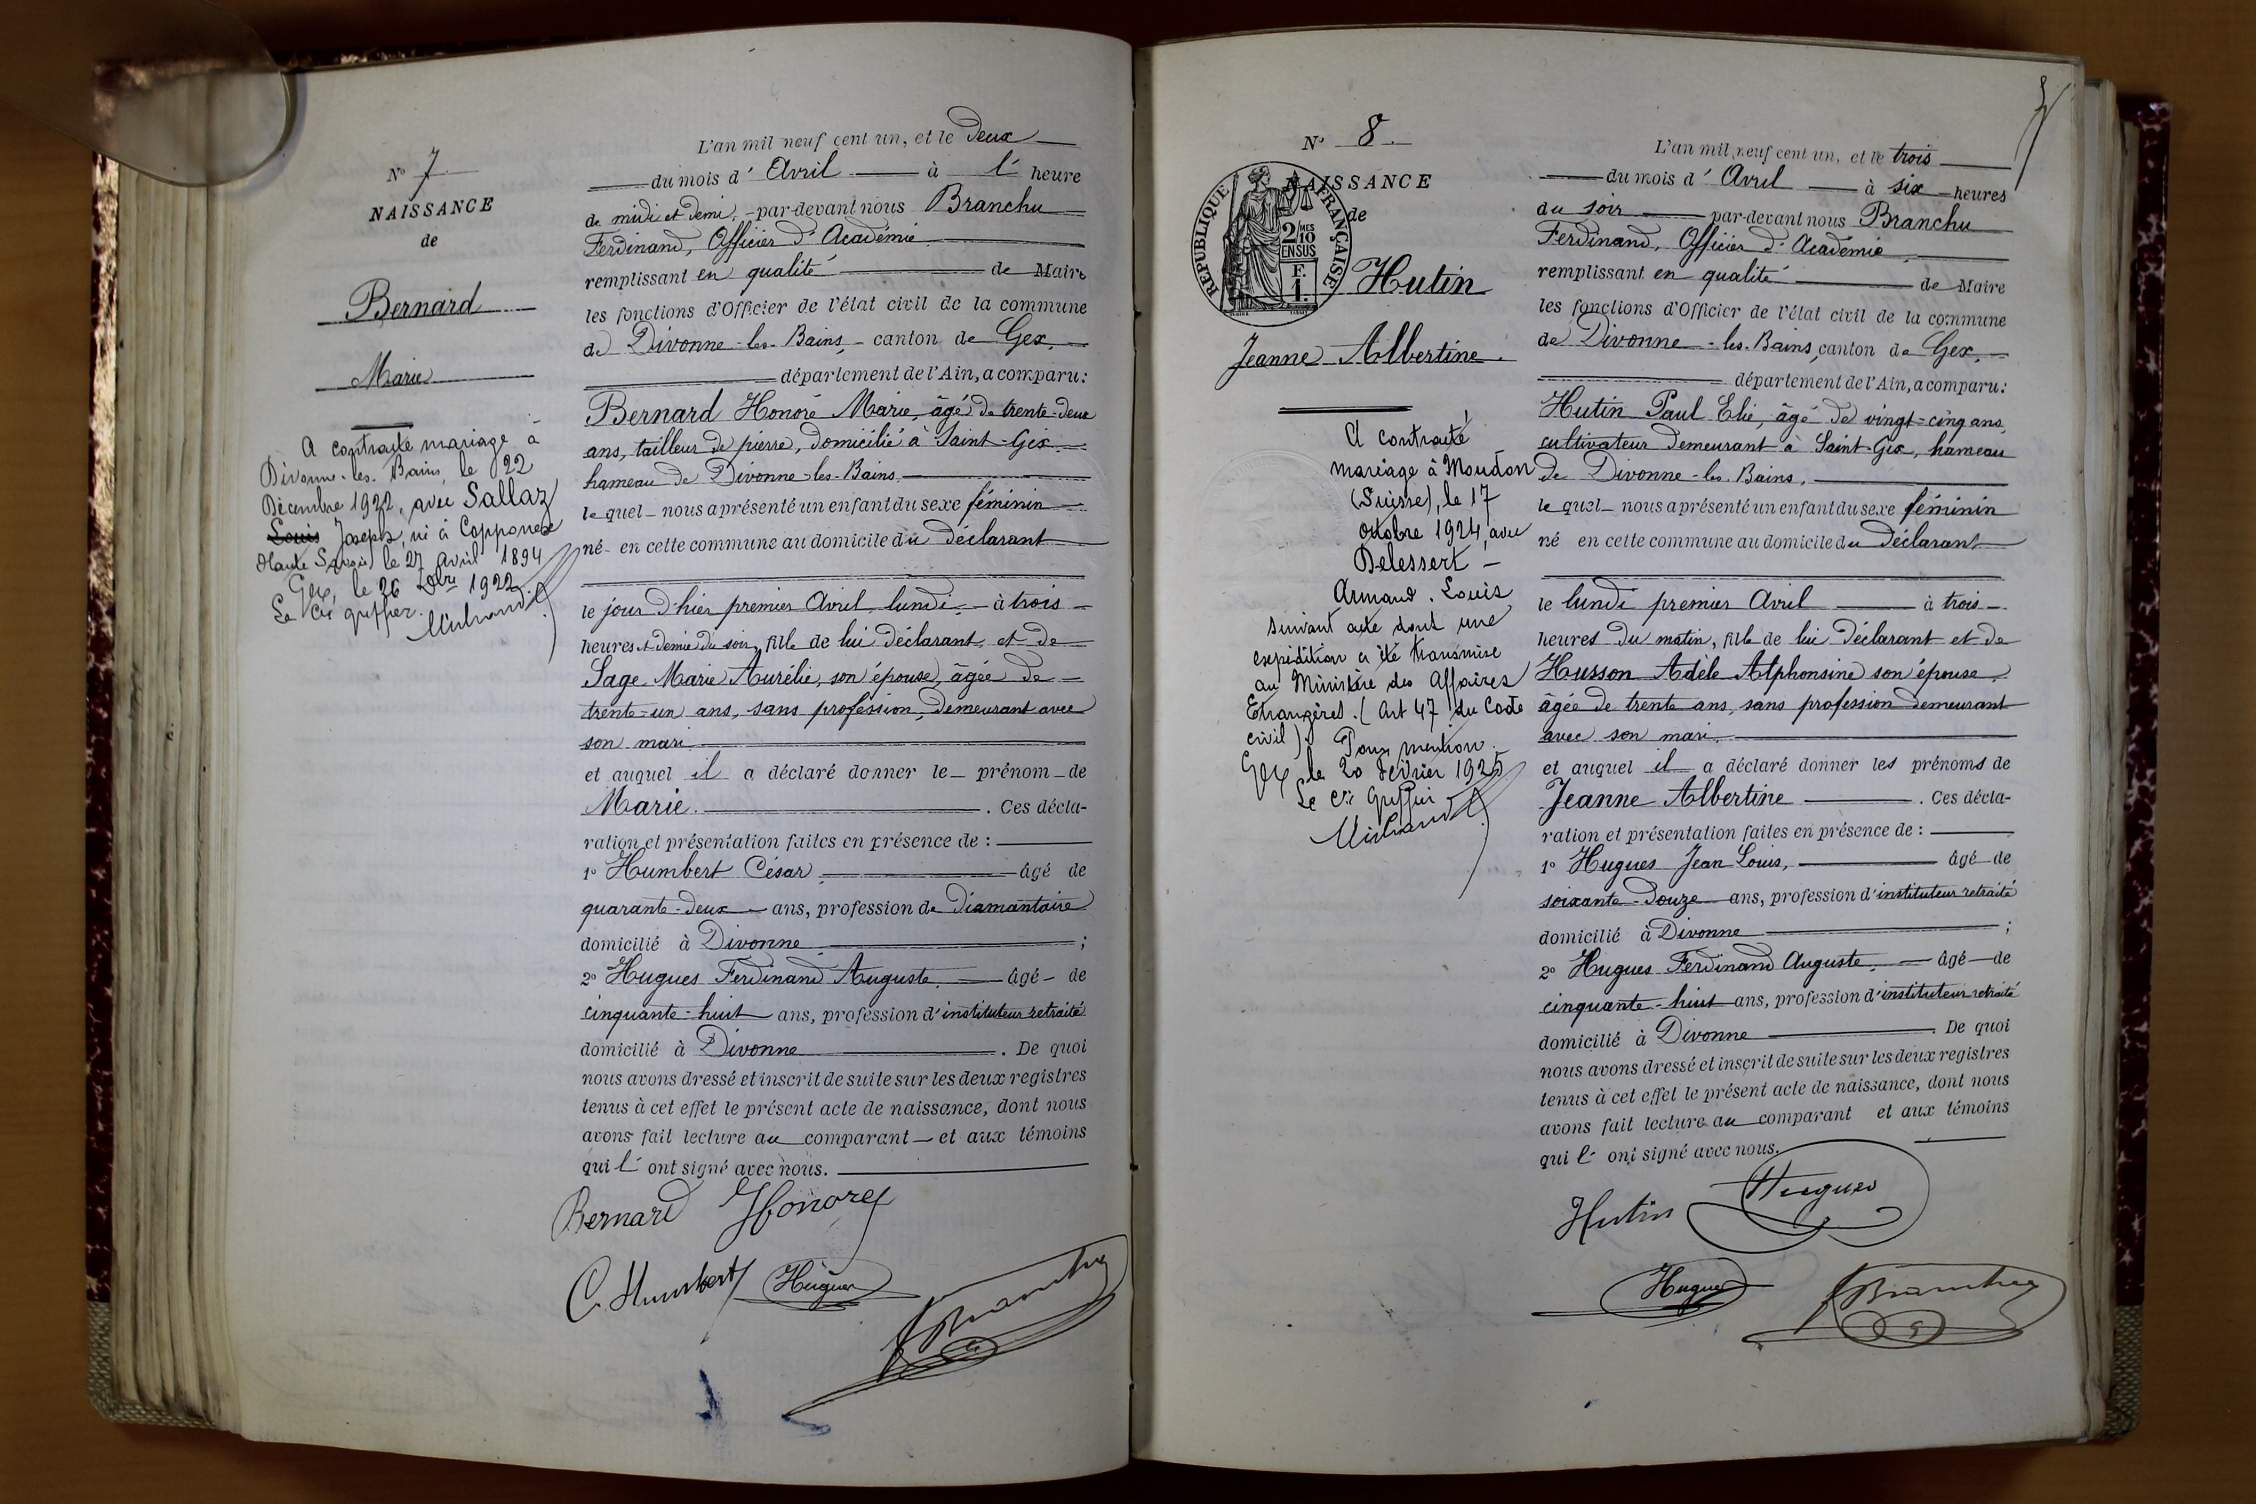 N° 7
NAISSANCE
de
Bernard
Marie
A contracté mariage à
Divonne-les-Bains, le 22
Décembre 1922, avec Sallaz
Louis Joseph, né à Copponex
(Haute Savoie) le 27 avril 1894
Gex, le 26 Xbre 1922
Le Cis greffier.
L'an mil neuf cent un, et le deux
du mois d' Avril à l' heure
de midi et demi, par-devant nous Branchu
Ferdinand, Officier d'Académie
remplissant en qualité de Maire
les fonctions d'Officier de l'état civil de la commune
de Divonne-les-Bains, canton de Gex,
département de l'Ain, a comparu:
Bernard Honoré Marie, âgé de trente-deux
ans, tailleur de pierre, domicilié à Saint-Gix,
hameau de Divonne-les-Bains,
le quel nous a présenté un enfant du sexe féminin
né en cette commune au domicile du déclarant
le jour d'hier premier Avril, lundi, à trois
heures et demie du soir, fille de lui déclarant et de
Sage Marie Aurélie, son épouse, âgée de
trente-un ans, sans profession, demeurant avec
son mari
et auquel il a déclaré donner le prénom de
Marie. . Ces décla-
ration et présentation faites en présence de :
1° Humbert César, âgé de
quarante-deux ans, profession de diamantaire
domicilié à Divonne ;
2° Hugues Ferdinand Auguste, âgé de
cinquante-huit ans, profession d'instituteur retraité
domicilié à Divonne . De quoi
nous avons dressé et inscrit de suite sur les deux registres
tenus à cet effet le présent acte de naissance, dont nous
avons fait lecture au comparant et aux témoins
qui l' ont signé avec nous.
Bernard Honoré
C. Humbert Hugues
Branchu
N° 8
NAISSANCE
de
RÉPUBLIQUE FRANÇAISE
2/10 MES
EN SUS
F.
1.
Hutin
Jeanne Albertine
A contracté
mariage à Moudon
(Suisse), le 17
octobre 1924, avec
Delessert
Armand. Louis
suivant acte dont une
expédition a été transmise
au Ministère des Affaires
Etrangères. (Art 47 du Code
civil). Pour mention.
Gex le 20 février 1925
Le Cis Greffier
L'an mil neuf cent un, et le trois
du mois d' Avril à six heures
du soir par-devant nous Branchu
Ferdinand, Officier d'Académie,
remplissant en qualité de Maire
les fonctions d'Officier de l'état civil de la commune
de Divonne-les-Bains, canton de Gex,
département de l'Ain, a comparu:
Hutin Paul Elie, âgé de vingt-cinq ans,
cultivateur demeurant à Saint-Gix, hameau
de Divonne-les-Bains,
le quel nous a présenté un enfant du sexe féminin
né en cette commune au domicile du déclarant
le lundi premier Avril à trois
heures du matin, fille de lui déclarant et de
Husson Adèle Alphonsine son épouse,
âgée de trente ans, sans profession demeurant
avec son mari.
et auquel il a déclaré donner les prénoms de
Jeanne Albertine . Ces décla-
ration et présentation faites en présence de :
1° Hugues Jean Louis, âgé de
soixante-douze ans, profession d'instituteur retraité
domicilié à Divonne ;
2° Hugues Ferdinand Auguste, âgé de
cinquante-huit ans, profession d'instituteur retraité
domicilié à Divonne . De quoi
nous avons dressé et inscrit de suite sur les deux registres
tenus à cet effet le présent acte de naissance, dont nous
avons fait lecture au comparant et aux témoins
qui l' ont signé avec nous.
Hutin Hugues
Hugues Branchu